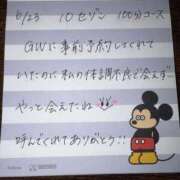 5/23 10セゾン 100分コース
GWに事前予約してくれて
いたのに私の体調不良で会えず
やっと会えたね
呼んでくれてありがとう!!